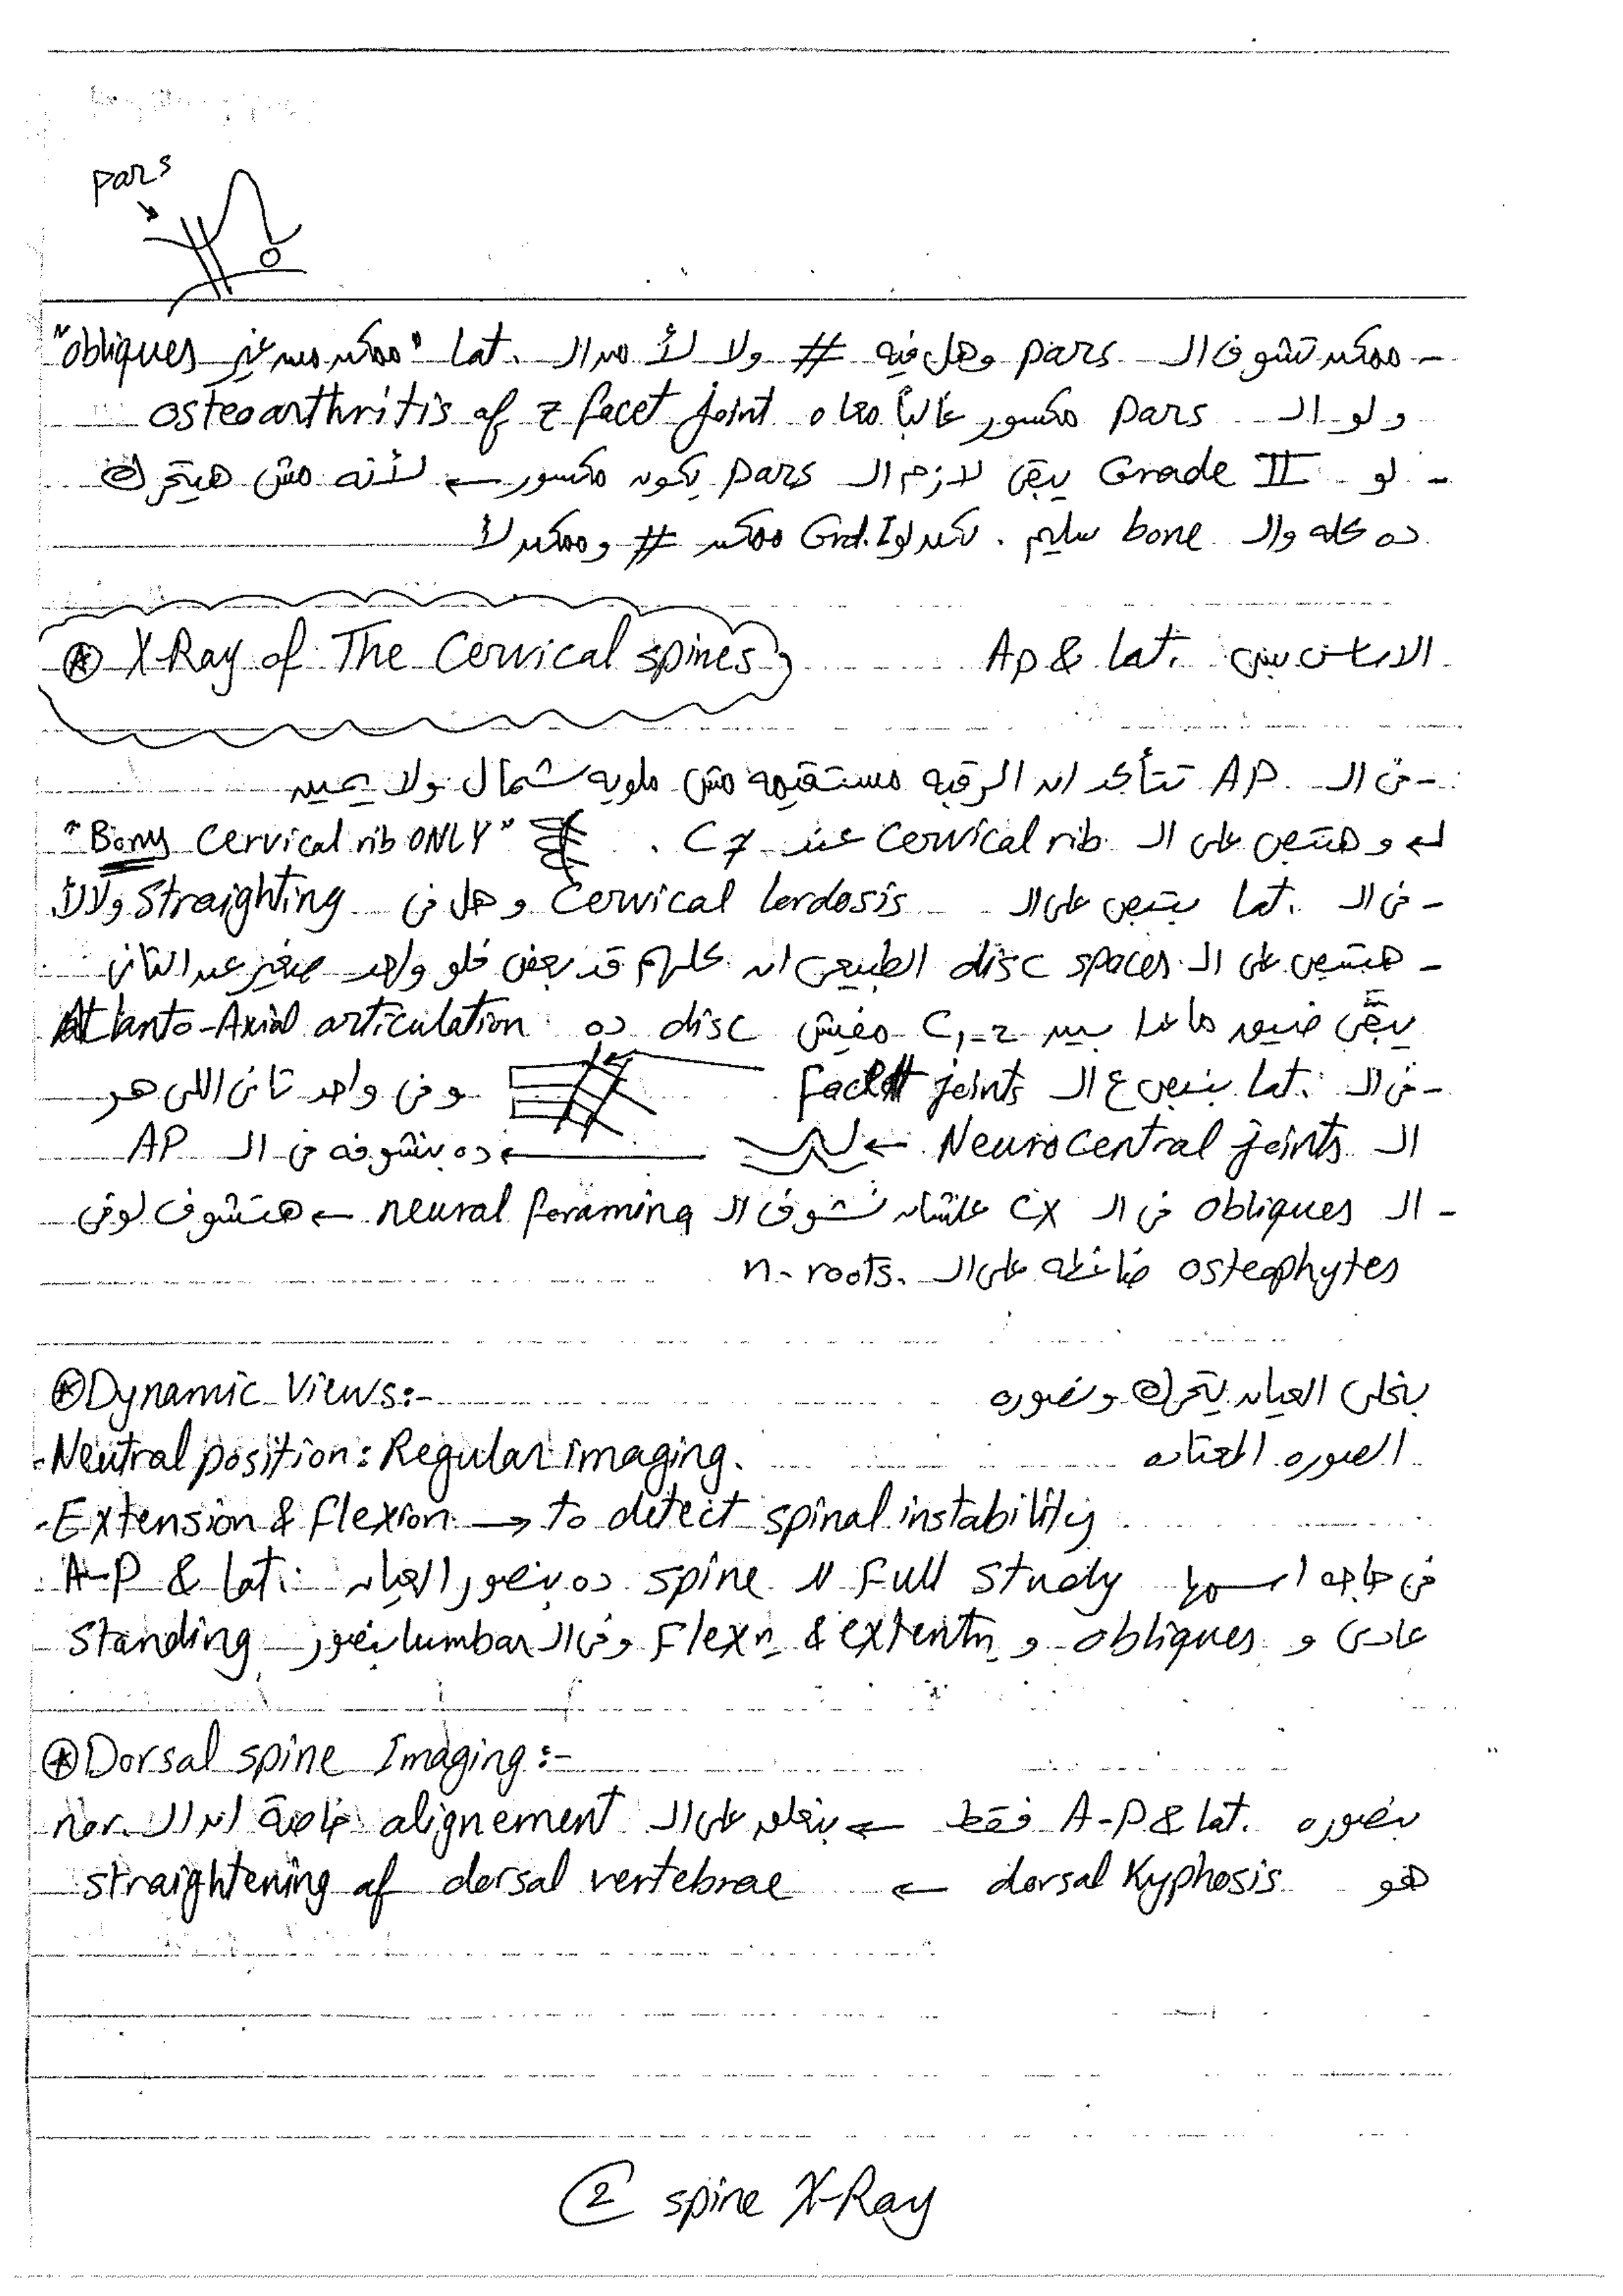 pars
- ممكن تشوف ال pars وهل فيه # ولا لأ من ال lat. "ممكن من غير obliques"
ولو ال pars مكسور غالباً معاه osteoarthritis of z facet joint
- لو Grade II يبقى لازم ال pars يكون مكسور ← لأنه مش هيتحرك
ده كله وال bone سليم. لكن لو Grd.I ممكن # وممكن لأ
⊛ X-Ray of The Cervical spines
الاساس بس Ap & lat.
- فى ال AP تتأكد ان الرقبه مستقيمه مش ملويه شمال ولا يمين
وهتبص على ال Cervical rib عند C7. "Bony Cervical rib ONLY"
- فى ال lat. بتبص على ال Cervical lordosis وهل فى straighting ولا لأ
- هتبص على ال disc spaces الطبيعى ان كلهم قد بعض فلو واحد صغير عن التانى
يبقى ضيق ماعدا بين C1-2 مفيش disc ده Atlanto-Axial articulation
- فى ال lat. بنبص ع ال facet joints وفى واحد تانى اللى هو
ال Neurocentral joints ← ← ده بنشوفه فى ال AP
- ال obliques فى ال Cx علشان نشوف ال neural foramina ← هتشوف لو فى
osteophytes ضاغطه على ال n. roots.
⊛ Dynamic Views:- بنخلى العيان يتحرك ونصوره
- Neutral position: Regular imaging. الصوره المعتاده
- Extension & flexion → to detect spinal instability
فى حاجه اسمها Full study لل spine ده بنصور العيان A-P & lat.
عادى و obliques و Flexn & extentn وفى ال lumbar بنصور standing
⊛ Dorsal spine Imaging:-
بنصوره A-P & lat. فقط ← بنعلق على ال alignement خاصة ان ال nor.
هو dorsal Kyphosis ← straightening of dorsal vertebrae
② spine X-Ray